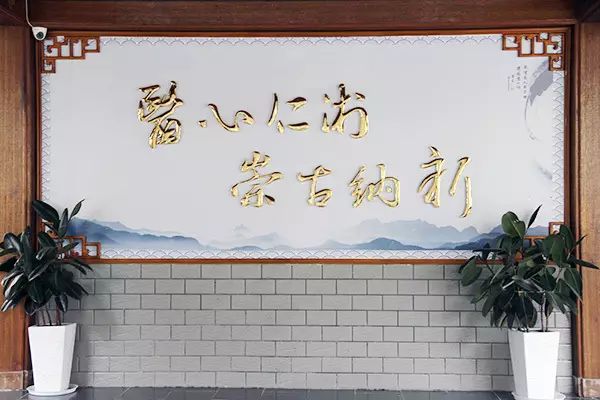 醫心仁術
崇古納新